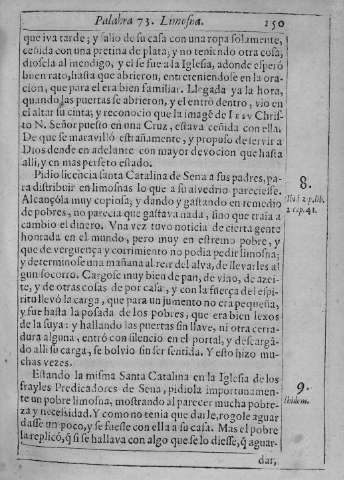 Palabra 73. Limosna. 150
que iva tarde; y salio de su casa con una ropa solamente,
ceñida con una pretina de plata; y no teniendo otra cosa,
diosela al mendigo, y el se fue a la Iglesia, adonde esperò
buen rato, hasta que abrieron, entreteniendose en la ora-
cion, que para el era bien familiar. Llegada ya la hora,
quando las puertas se abrieron, y el entrò dentro, vio en
el altar su cinta; y reconocio que la imagẽ de Iesv Chris-
to N. Señor puesto en una Cruz, estava ceñida con ella.
De que se maravillò estrañamente, y propuso de servir a
Dios dende en adelante con mayor devocion que hasta
alli, y en mas perfeto estado.
Pidio licencia santa Catalina de Sena a sus padres, pa-
ra distribuir en limosnas lo que a su alvedrio pareciesse.
8.
Alcançòla muy copiosa; y dando y gastando en remedio
de pobres, no parecia que gastava nada, sino que traia a
cambio el dinero. Vna vez tuvo noticia de cierta gente
honrada en el mundo, pero muy en estremo pobre, y
que de verguença y corrimiento no podia pedir limosna;
y determinose una mañana al reir del alva, de llevarles al
gun socorro. Cargose muy bien de pan, de vino, de azei-
te, y de otras cosas de por casa, y con la fuerça del espi-
ritu llevò la carga, que para un jumento no era pequeña,
y fue hasta la posada de los pobres, que era bien lexos
de la suya: y hallando las puertas sin llave, ni otra cerra-
dura alguna, entrò con silencio en el portal, y descargã-
do alli su carga, se bolvio sin ser sentida. Y esto hizo mu
chas vezes.
Estando la misma Santa Catalina en la Iglesia de los
frayles Predicadores de Sena, pidiola importunamen-
9.
te un pobre limosna, mostrando al parecer mucha pobre-
Ibidem.
za y necessidad. Y como no tenia que darle, rogole aguar
dasse un poco, y se fuesse con ella a su casa. Mas el pobre
la replicò, q̃ si se hallava con algo que se lo diesse, q̃ aguar-
dar,